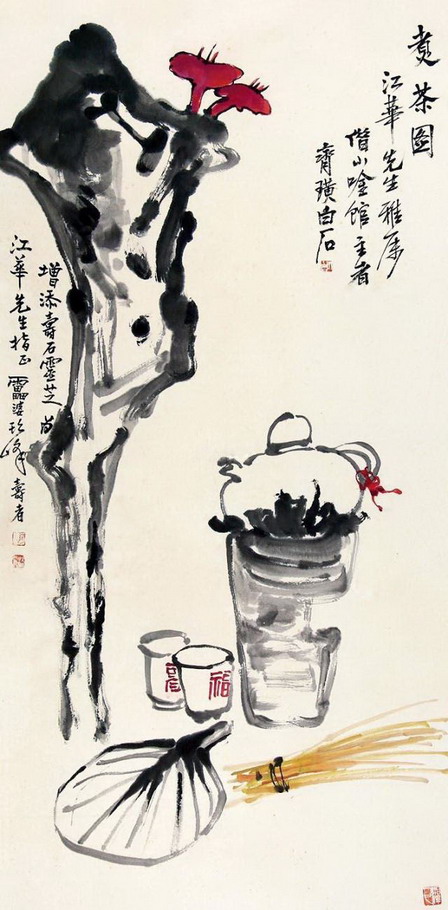 煑茶圖
江華先生雅屬
借山唫館主者
齊璜白石
增添壽石靈芝
江華先生指正 壽者
福